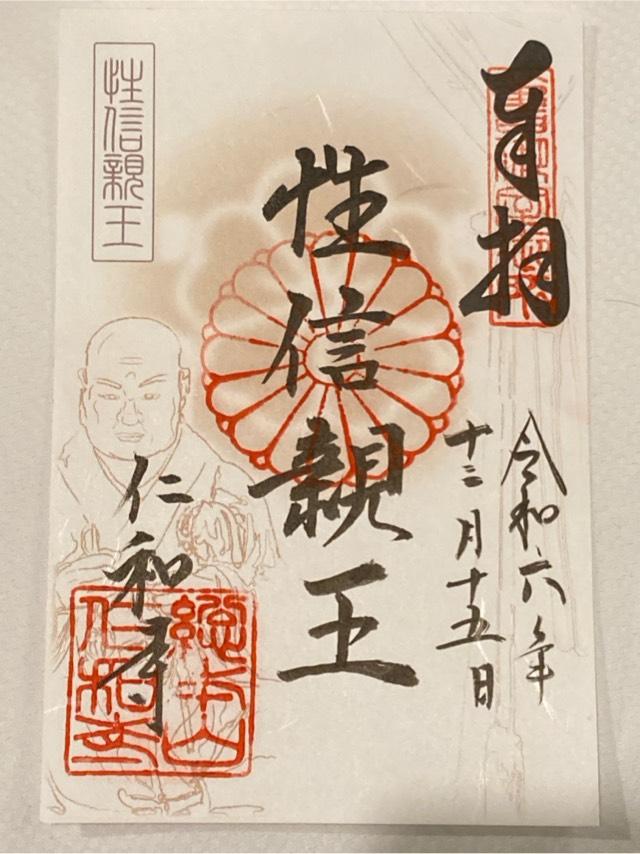 奉拝
令和六年
十二月十五日
性信親王
性信親王
仁和寺
總本山
仁和寺